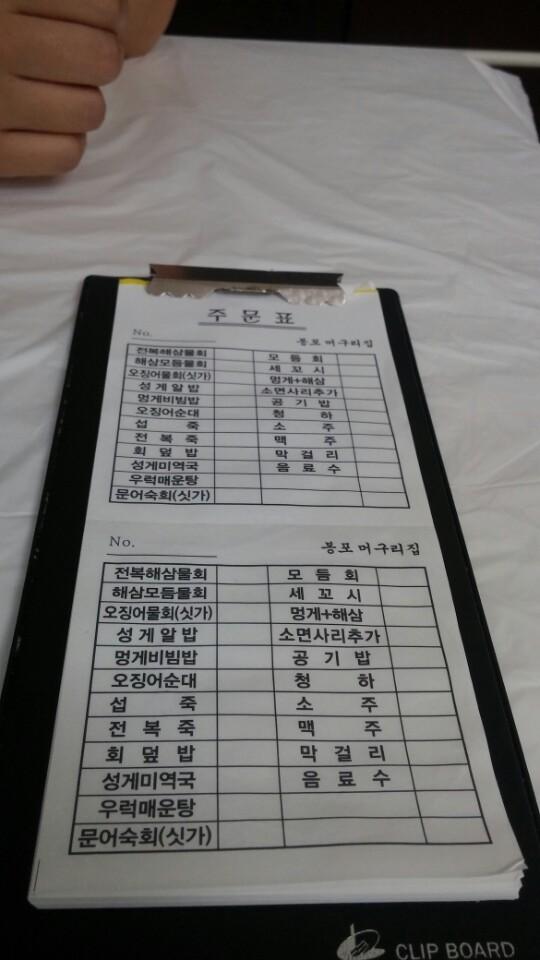 주 문 표
No.
봉포머구리집
전복해삼물회 모 듬 회
해삼모듬물회 세 꼬 시
오징어물회(싯가) 멍게+해삼
성 게 알 밥 소면사리추가
멍게비빔밥 공 기 밥
오징어순대 청 하
섭 죽 소 주
전 복 죽 맥 주
회 덮 밥 막 걸 리
성게미역국 음 료 수
우럭매운탕
문어숙회(싯가)
No.
봉포머구리집
전복해삼물회 모 듬 회
해삼모듬물회 세 꼬 시
오징어물회(싯가) 멍게+해삼
성 게 알 밥 소면사리추가
멍게비빔밥 공 기 밥
오징어순대 청 하
섭 죽 소 주
전 복 죽 맥 주
회 덮 밥 막 걸 리
성게미역국 음 료 수
우럭매운탕
문어숙회(싯가)
CLIP BOARD